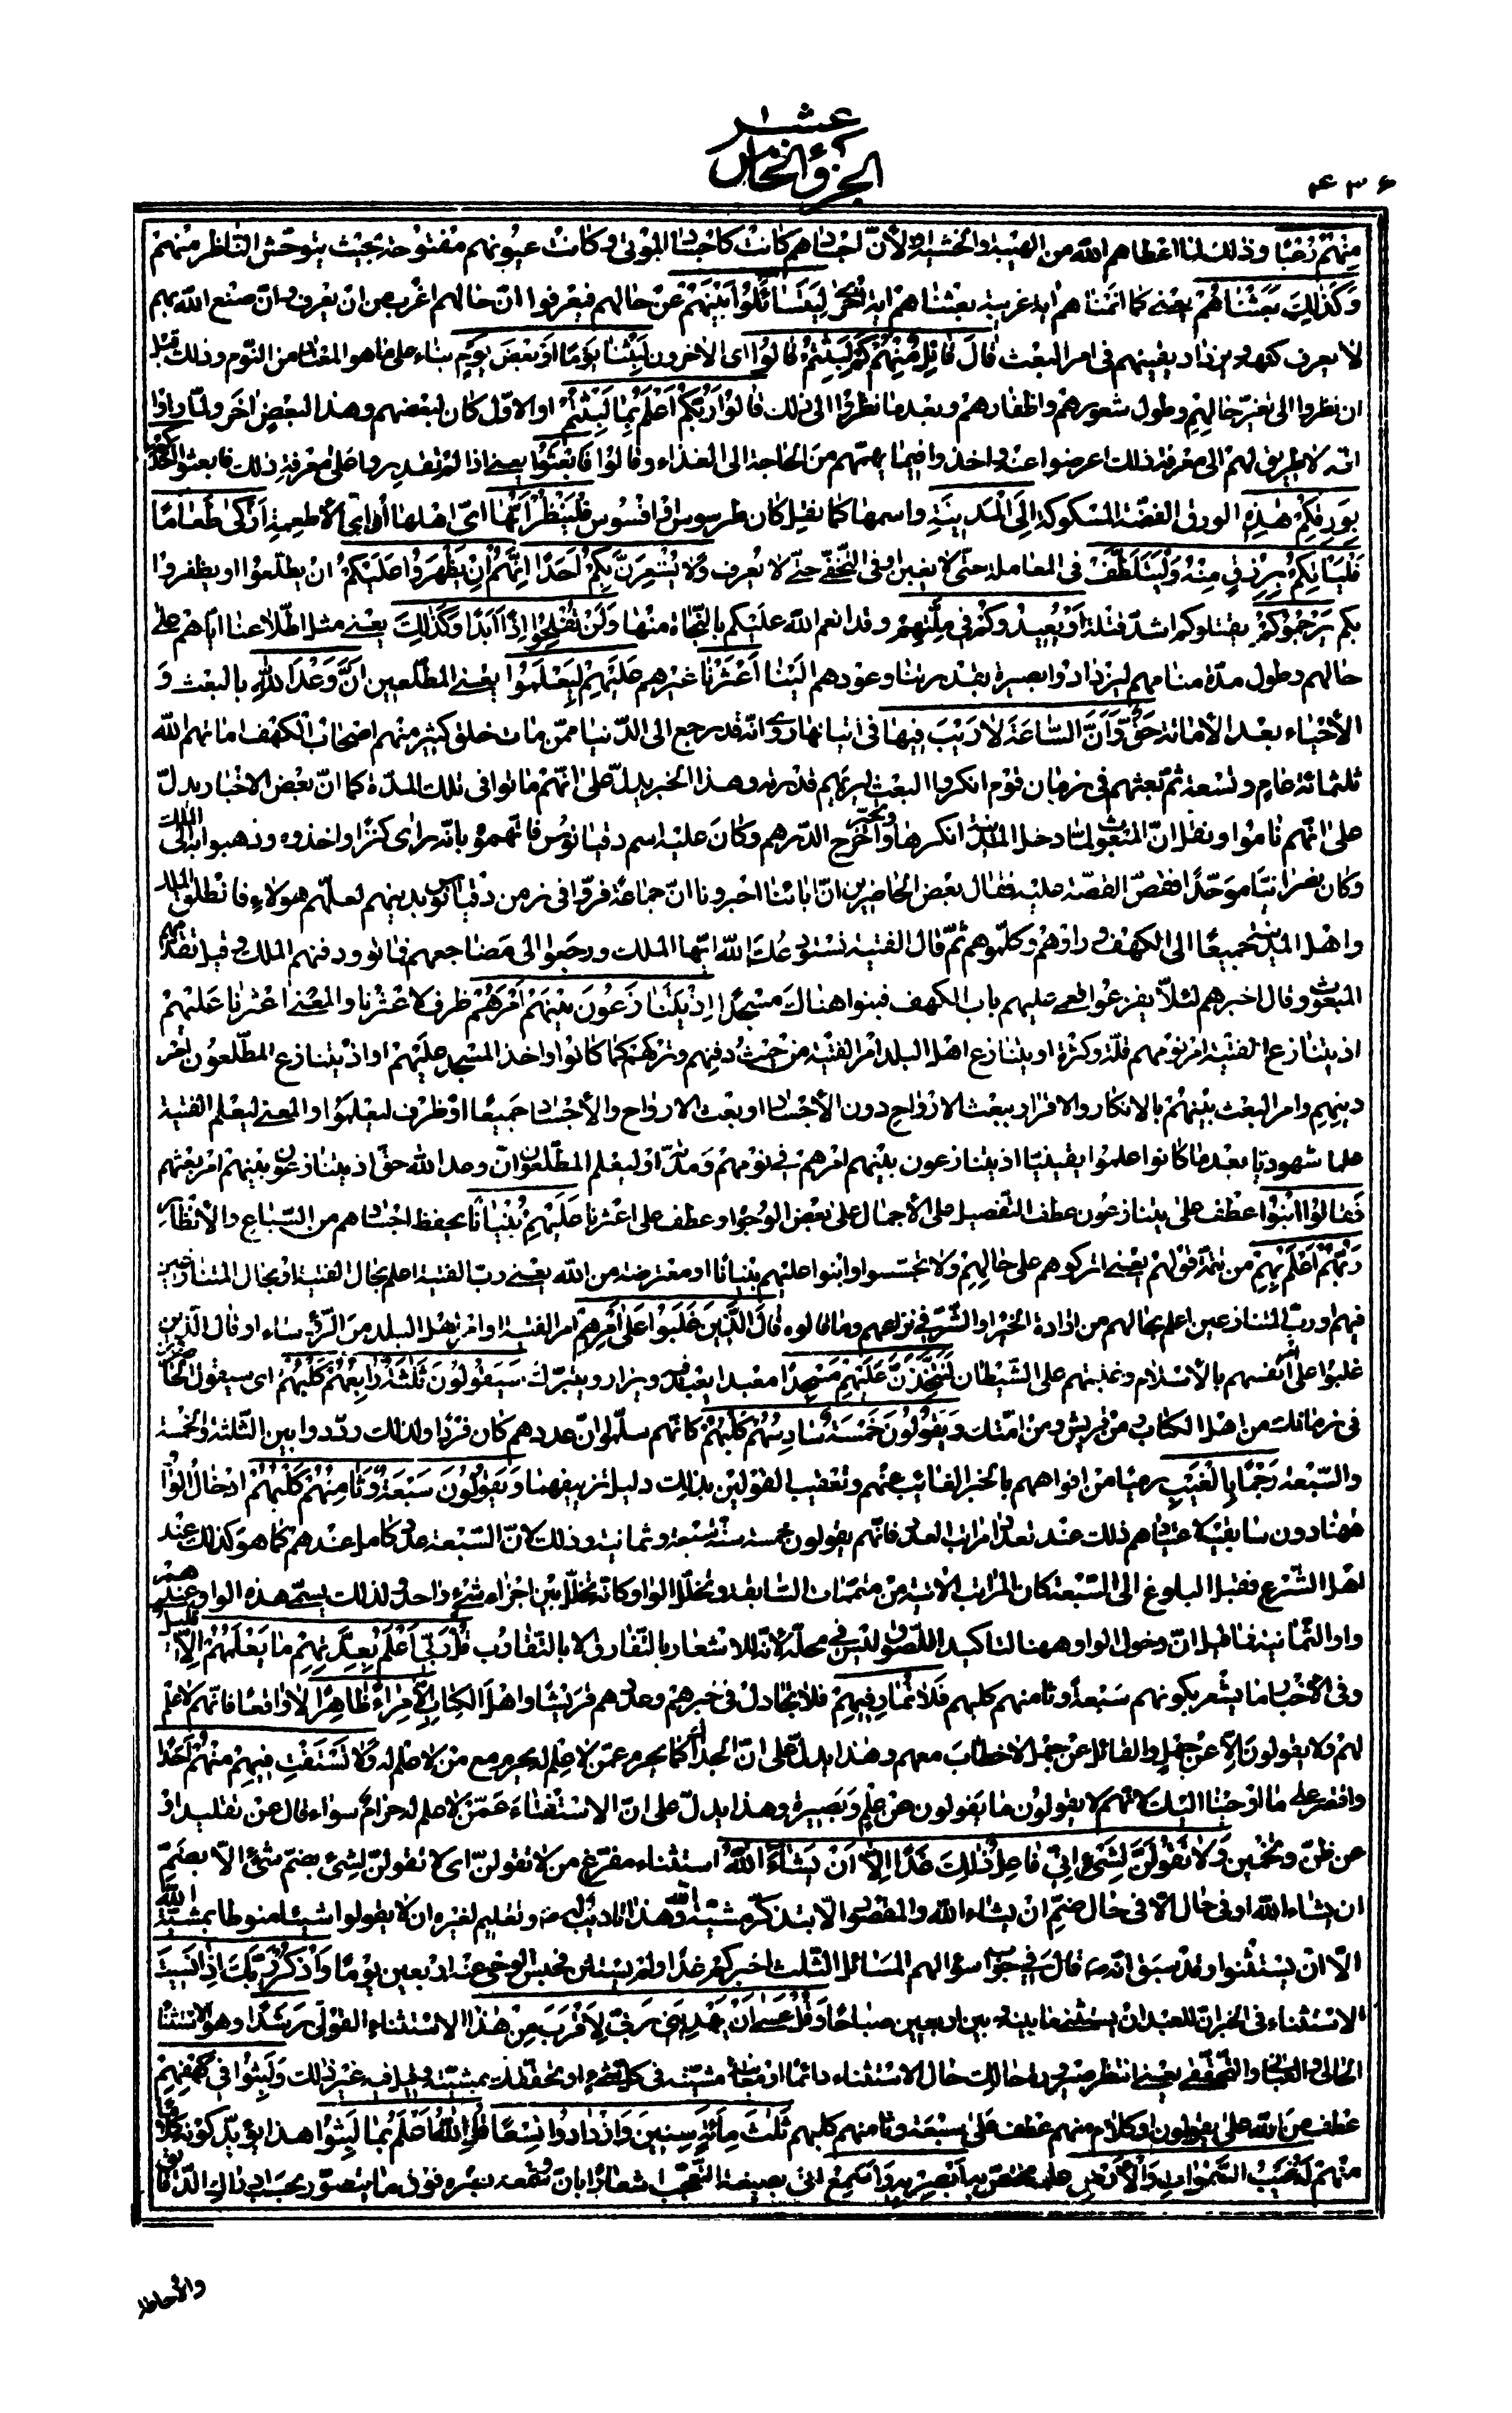 الجزؤ الخامس عشر
۴۳۶
مِنْهُمْ رُعْبًا وذلك لما اعطاهم اللّه من الهيبة والخشية او لأنّ اجسادهم كانت كاجساد الموتى وكانت عيونهم مفتوحة بحيث يتوحّش النّاظر منهم
وَكَذٰلِكَ بَعَثْنٰاهُمْ يعنى كما انمناهم اية غريبة بعثناهم اية اخرى لِيَتَسٰائَلُوا بَيْنَهُمْ عن حالهم فيعرفوا انّ حالهم اغرب من ان يعرف وانّ صنع اللّه بهم
لا يعرف كنهه ويزداد يقينهم فى امر البعث قٰالَ قٰائِلٌ مِنْهُمْ كَمْ لَبِثْتُمْ قٰالُوا اى الاخرون لَبِثْنٰا يَوْمًا اَوْ بَعْضَ يَوْمٍ بناء على ما هو المعتاد من النّوم وذلك قبل
ان نظروا الى تغيّر حالهم وطول شعورهم واظفارهم وبعد ما نظروا الى ذلك قٰالُوا رَبُّكُمْ اَعْلَمُ بِمٰا لَبِثْتُمْ او الاوّل كان لبعضهم وهذا لبعض اخر ولمّا راوا
انّه لا طريق لهم الى معرفة ذلك اعرضوا عنه واخذوا فيما يهمّهم من الحاجة الى الغذاء وقالوا فَابْعَثُوا يعنى اذا لم تقديروا على معرفة ذلك فابعثوا اَحَدَكُمْ
بِوَرِقِكُمْ هٰذِهِ الورق الفضّة المسكوكة اِلَى الْمَدِينَةِ واسمها كما نقيل كان طرسوس او افسوس فَلْيَنْظُرْ اَيُّهٰا اىّ اهلها او اىّ الأطعمة اَزْكىٰ طَعٰامًا
فَلْيَأْتِكُمْ بِرِزْقٍ مِنْهُ وَلْيَتَلَطَّفْ فى المعاملة حتّى لا يغبن او فى التّخفّى حتّى لا يعرف وَلٰا يُشْعِرَنَّ بِكُمْ اَحَدًا اِنَّهُمْ اِنْ يَظْهَرُوا عَلَيْكُمْ ان يطّلعوا او يظفروا
بكم يَرْجُمُوكُمْ يقتلوكم اشدّ قتلة اَوْ يُعِيدُوكُمْ فِى مِلَّتِهِمْ وقد انعم اللّه عليكم بالنّجاة منها وَلَنْ تُفْلِحُوا اِذًا اَبَدًا وَكَذٰلِكَ يعنى مثل اطّلاعنا ايّاهم على
حالهم وطول مدّة منامهم ليزدادوا بصيرة بقدرتنا وعودهم الينا اَعْثَرْنٰا غيرهم عَلَيْهِمْ لِيَعْلَمُوا يعنى المطّلعين اَنَّ وَعْدَ اللّٰهِ بالبعث و
الأحياء بعد الأماتة حَقٌّ وَاَنَّ السّٰاعَةَ لٰا رَيْبَ فِيهٰا فى اتيانها روى انّه قد رجع الى الدّنيا ممّن مات خلق كثير منهم اصحاب الكهف اماتهم اللّه
ثلثمائة عام وتسعة ثمّ بعثهم فى زمان قوم انكروا البعث ليريهم قدرته وهذا الخبر يدلّ على انّهم ماتوا فى تلك المدّة كما انّ بعض الاخبار يدلّ
على انّهم ناموا ونقل انّ المبعوث لمّا دخل المدينة انكرها وتحيّر واخرج الدّرهم وكان عليه اسم دقيانوس فاتّهموه بانّه راى كنزا واخذوه وذهبوا به الى الملك
وكان نصرانيّا موحّدًا فقصّ القصّة عليه فقال بعض الحاضرين انّ ابائنا اخبرونا انّ جماعة فرّوا فى زمن دقيانوس بدينهم لعلّهم هؤلاء فانطلق الملك
واهل المدينة جميعًا الى الكهف وراوهم وكلّموهم ثمّ قال الفتية نستودعك اللّه ايّها الملك ورجعوا الى مضاجعهم فماتوا ودفنهم الملك وقيل تقدّمهم
المبعوث وقال اخبرهم لئلّا يفزعوا فعمى عليهم باب الكهف فبنوا هناك مسجدًا اِذْ يَتَنٰازَعُونَ بَيْنَهُمْ اَمْرَهُمْ ظرف لاعثرنا والمعنى اعثرنا عليهم
اذ يتنازع الفتية امر نومهم قلّة وكثرة او يتنازع اهل البلد امر الفتية من حيث دفنهم وتركهم كما كانوا واخذ المسجد عليهم او اذ يتنازع المطّلعون امر
دينهم وامر البعث بينهم بالانكار والاقرار وببعث الارواح دون الأجساد او بعث الارواح والأجساد جميعًا او ظرف ليعلموا والمعنى ليعلم الفتية
علما شهوديّا بعد ما كانوا علموا يقينيّا اذ يتنازعون بينهم امرهم فى نومهم ومدّته او ليعلم المطّلعون انّ وعد اللّه حقّ اذ يتنازعون بينهم امر بعثهم
فَقٰالُوا ابْنُوا عطف على يتنازعون عطف التّفصيل على الأجمال على بعض الوجوه او عطف على اعثرنا عَلَيْهِمْ بُنْيٰانًا يحفظ اجسادهم من السّباع والأنظار
رَبُّهُمْ اَعْلَمُ بِهِمْ من تتمّة قولهم يعنى اتركوهم على حالهم ولا تجسّسوا وابنوا عليهم بنيانًا او معترضة من اللّه يعنى ربّ الفتية اعلم بحال الفتية او بحال المتنازعين
فيهم او ربّ المتنازعين اعلم بحالهم من ارادة الخير او الشّر فى نزاعهم وما قالوه قٰالَ الَّذِينَ غَلَبُوا عَلىٰ اَمْرِهِمْ امر الفتية او امر اهل البلد من الرّؤساء او قال الّذين
غلبوا على امر نفسهم بالأسلام وغلبتهم على الشّيطان لَنَتَّخِذَنَّ عَلَيْهِمْ مَسْجِدًا معبدا يعبد فيه ويزار ويتبرّك سَيَقُولُونَ ثَلٰثَةٌ رٰابِعُهُمْ كَلْبُهُمْ اى سيقول
فى زمانك من اهل الكتاب ومن قريش ومن امّتك وَيَقُولُونَ خَمْسَةٌ سٰادِسُهُمْ كَلْبُهُمْ كانّهم سلّموا انّ عددهم كان فردًا ولذلك ردّدوا بين الثّلثة والخمسة
والسّبعة رَجْمًا بِالْغَيْبِ رميًا من افواههم بالخبر الغائب عنهم وتعقيب القولين بذلك دليل تزييفهما وَيَقُولُونَ سَبْعَةٌ وَثٰامِنُهُمْ كَلْبُهُمْ ادخال الواو
ههنا دون سابقيه لاعتيادهم ذلك عند تعداد مراتب العدد فانّهم يقولون خمسة ستّة سبعة وثمانية وذلك لانّ السّبعة عدد كامل عندهم كما هو كذلك عند
اهل الشّرع فقبل البلوغ الى السّبعة كان المراتب الاتية من متمّمات السّابقة وتخلّل الواو كانّه تخلّل بين اجزاء شىء واحد ولذلك يسمّى هذه الواو عندهم
واو الثّمانية فما قيل انّ دخول الواو ههنا لتاكيد اللّصوق ليس فى محلّه لانّه للاشعار بالتّفارق لا بالتّقارب قُلْ رَبِّى اَعْلَمُ بِعِدَّتِهِمْ مٰا يَعْلَمُهُمْ اِلّٰا قَلِيلٌ
وفى الأخبار ما يشعر بكونهم سبعة وثامنهم كلبهم فَلٰا تُمٰارِ فِيهِمْ فلا تجادل فى خبرهم وعددهم قريشًا واهل الكتاب اِلّٰا مِرٰاءً ظٰاهِرًا لا واقعا فانّهم لا علم
لهم ولا يقولون الّا عن جهل والقائل عن جهل لا خطاب معهم وهذا يدلّ على انّ الجدال كما يحرم عمّن لا علم له يحرم مع من لا علم له وَلٰا تَسْتَفْتِ فِيهِمْ مِنْهُمْ اَحَدًا
واقتصر على ما اوحينا اليك لانّهم لا يقولون ما يقولون عن علم وبصيرة وهذا يدلّ على انّ الاستفتاء عمّن لا علم له حرام سواء قال عن تقليد او
عن ظنّ وتخمين وَلٰا تَقُولَنَّ لِشَىْءٍ اِنِّى فٰاعِلٌ ذٰلِكَ غَدًا اِلّٰا اَنْ يَشٰاءَ اللّٰهُ استثناء مفرّغ من لا تقولنّ اى لا تقولنّ لشىء بضمّ شىء الّا بضمّ
ان يشاء اللّه او فى حال الّا فى حال ضمّ ان يشاء اللّه والمقصود الّا بتذكّر مشيّة اللّه وهذا تاديب له ص وتعليم لغيره ان لا يقولوا شيئًا منوطا بمشيّة اللّه
الّا ان يستثنوا وقد سبق انّه ص قال فى جواب سؤالهم المسائل الثّلث اخبركم غدًا ولم يستثن فحبس الوحى عنه اربعين يومًا وَاذْكُرْ رَبَّكَ اِذٰا نَسِيتَ
الاستثناء فى الخبر انّ للعبد ان يستثنى ما بينه وبين اربعين صباحًا وَقُلْ عَسىٰ اَنْ يَهْدِيَنِ رَبِّى لِاَقْرَبَ مِنْ هٰذٰا الاستثناء القولى رَشَدًا وهو الاستثناء
الحالى والعيانى والتّحقّقى يعنى انتظر صيرورة حالك حال الاستثناء دائمًا او معاينة مشيّته فى كلّ شىء او تحقّقك بمشيّته وقيل فيه غير ذلك وَلَبِثُوا فِى كَهْفِهِمْ
عطف من اللّه على يقولون او كلام منهم عطف على سبعة وثامنهم كلبهم ثَلٰثَ مِأَةٍ سِنِينَ وَازْدٰادُوا تِسْعًا قُلِ اللّٰهُ اَعْلَمُ بِمٰا لَبِثُوا هذا يؤيّد كونه كلامًا
منهم لَهُ غَيْبُ السَّمٰوٰاتِ وَالْاَرْضِ اَبْصِرْ بِهِ وَاَسْمِعْ اتى بصيغة التّعجّب اشعارًا بانّ وبصره فوق ما يتصوّر بحسب ادراك الدّقائق
والاحاطة